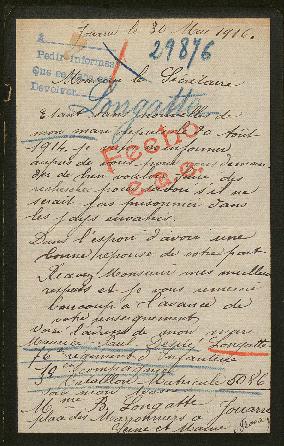 Jouarre le 30 Mai 1916.
29876
A
Pedir informes
que se
Devolver
Monsieur le Secrétaire
Longatte
Etant sans nouvelles de
mon mari depuis le 20 Août
1914 je viens m'informer
auprès de vous pour vous demander
de bien vouloir faire des
recherches pour savoir s'il ne
serait pas prisonnier dans
les pays envahis.
Fecho
Dans l'espoir d'avoir une
bonne réponse de votre part
Recevez Monsieur mes meilleurs
respects et je vous remercie
beaucoup à l'avance de
votre renseignement
Voici l'adresse de mon mari
Maurice Paul Désiré Longatte
76 régiment d'Infanterie
10 Compagnie
3 Bataillon Matricule 5086
Mme B. Longatte Jouarre
place des Marronniers
Seine et Marne